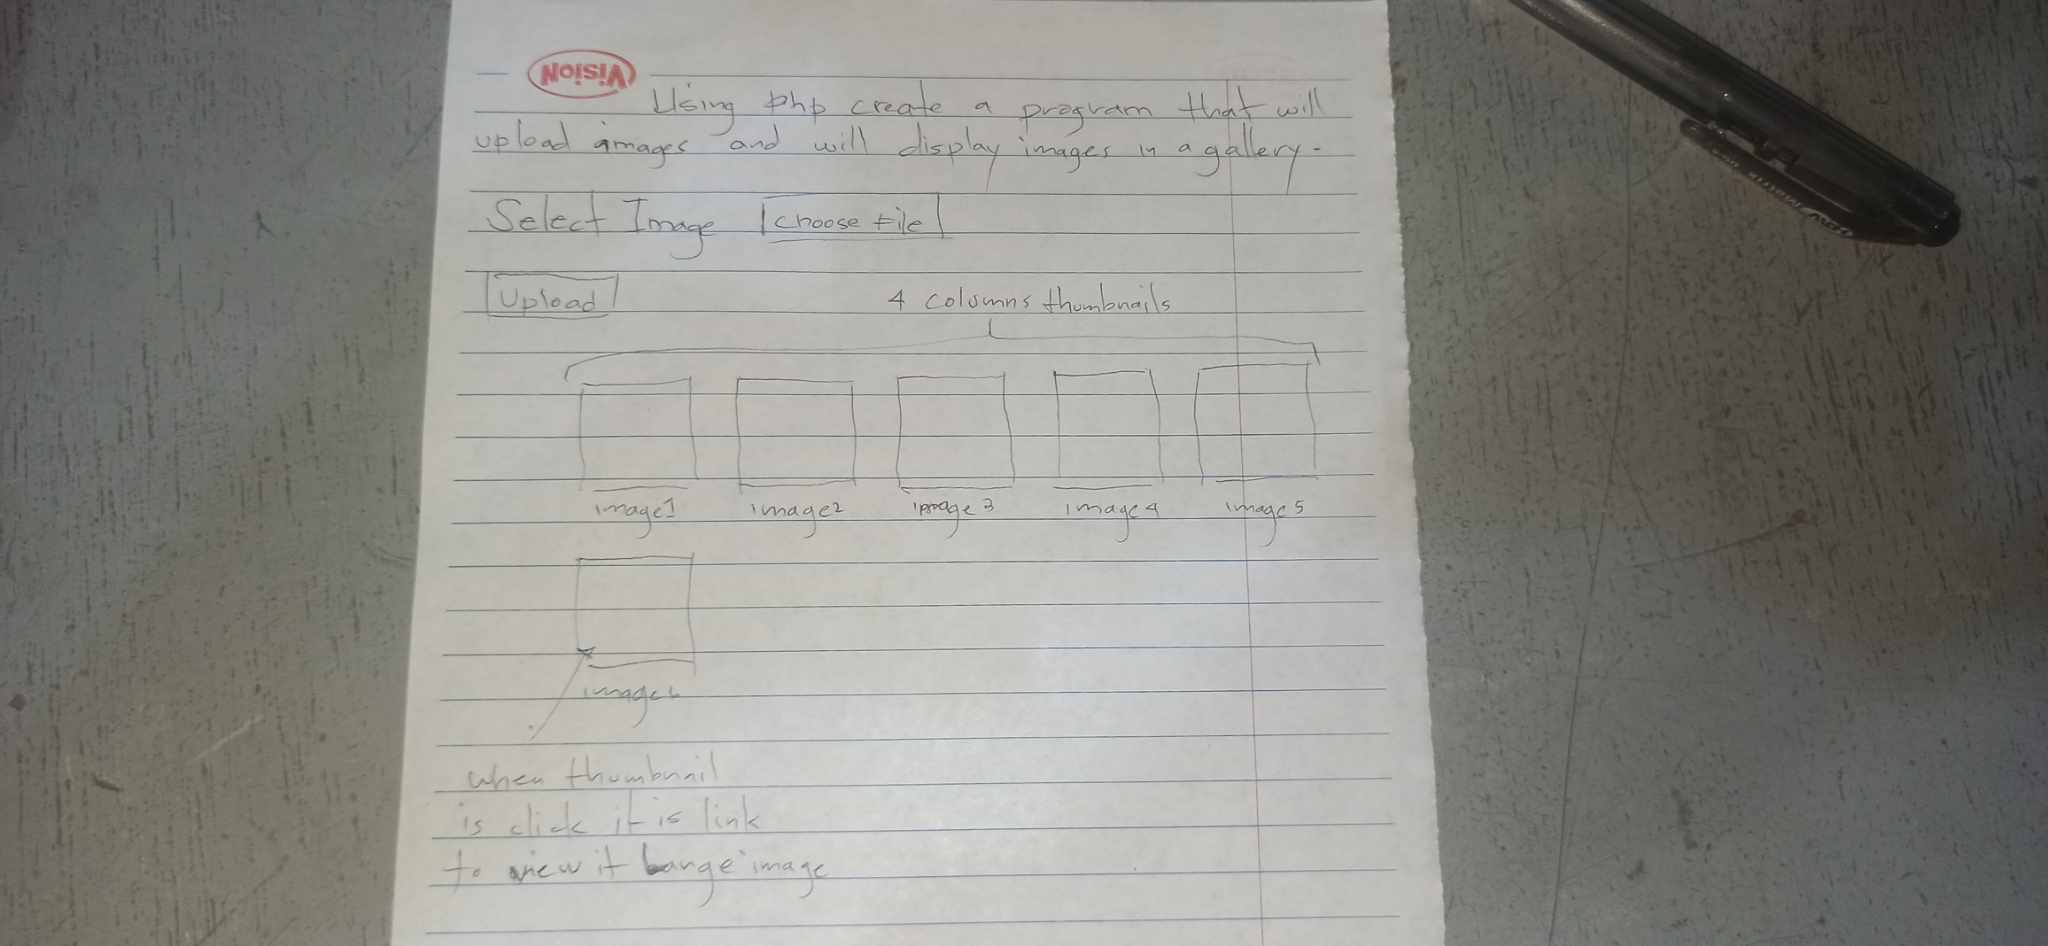 VisioN
Using php create a program that will
upload images and will display images in a gallery.
Select Image choose file
Upload
4 columns thumbnails
image1 image2 image 3 image 4 image 5
image6
when thumbnail
is click it is link
to view it Large image